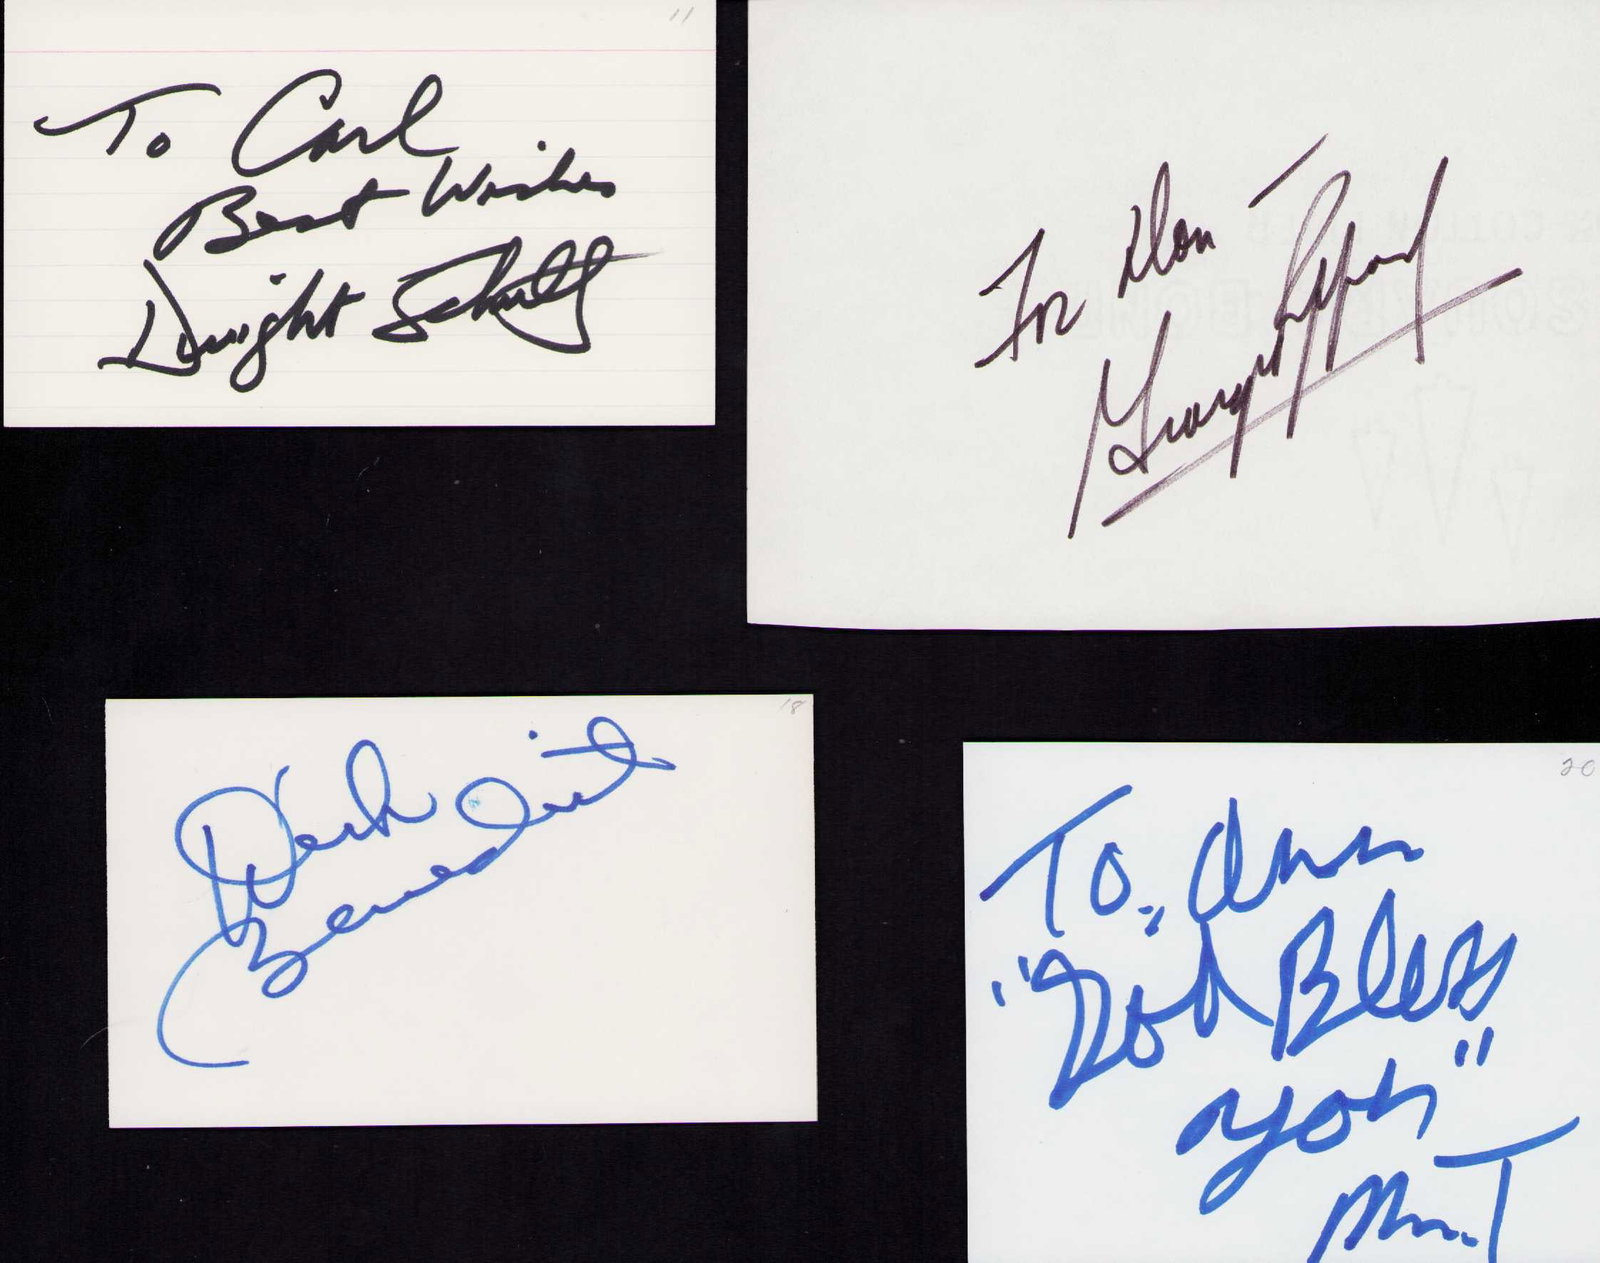 11
To Carl
Best Wishes
Dwight Schultz
For Don -
George Peppard
18
Dirk
Benedict
20
To, Ann
"God Bless
you"
Mr. T